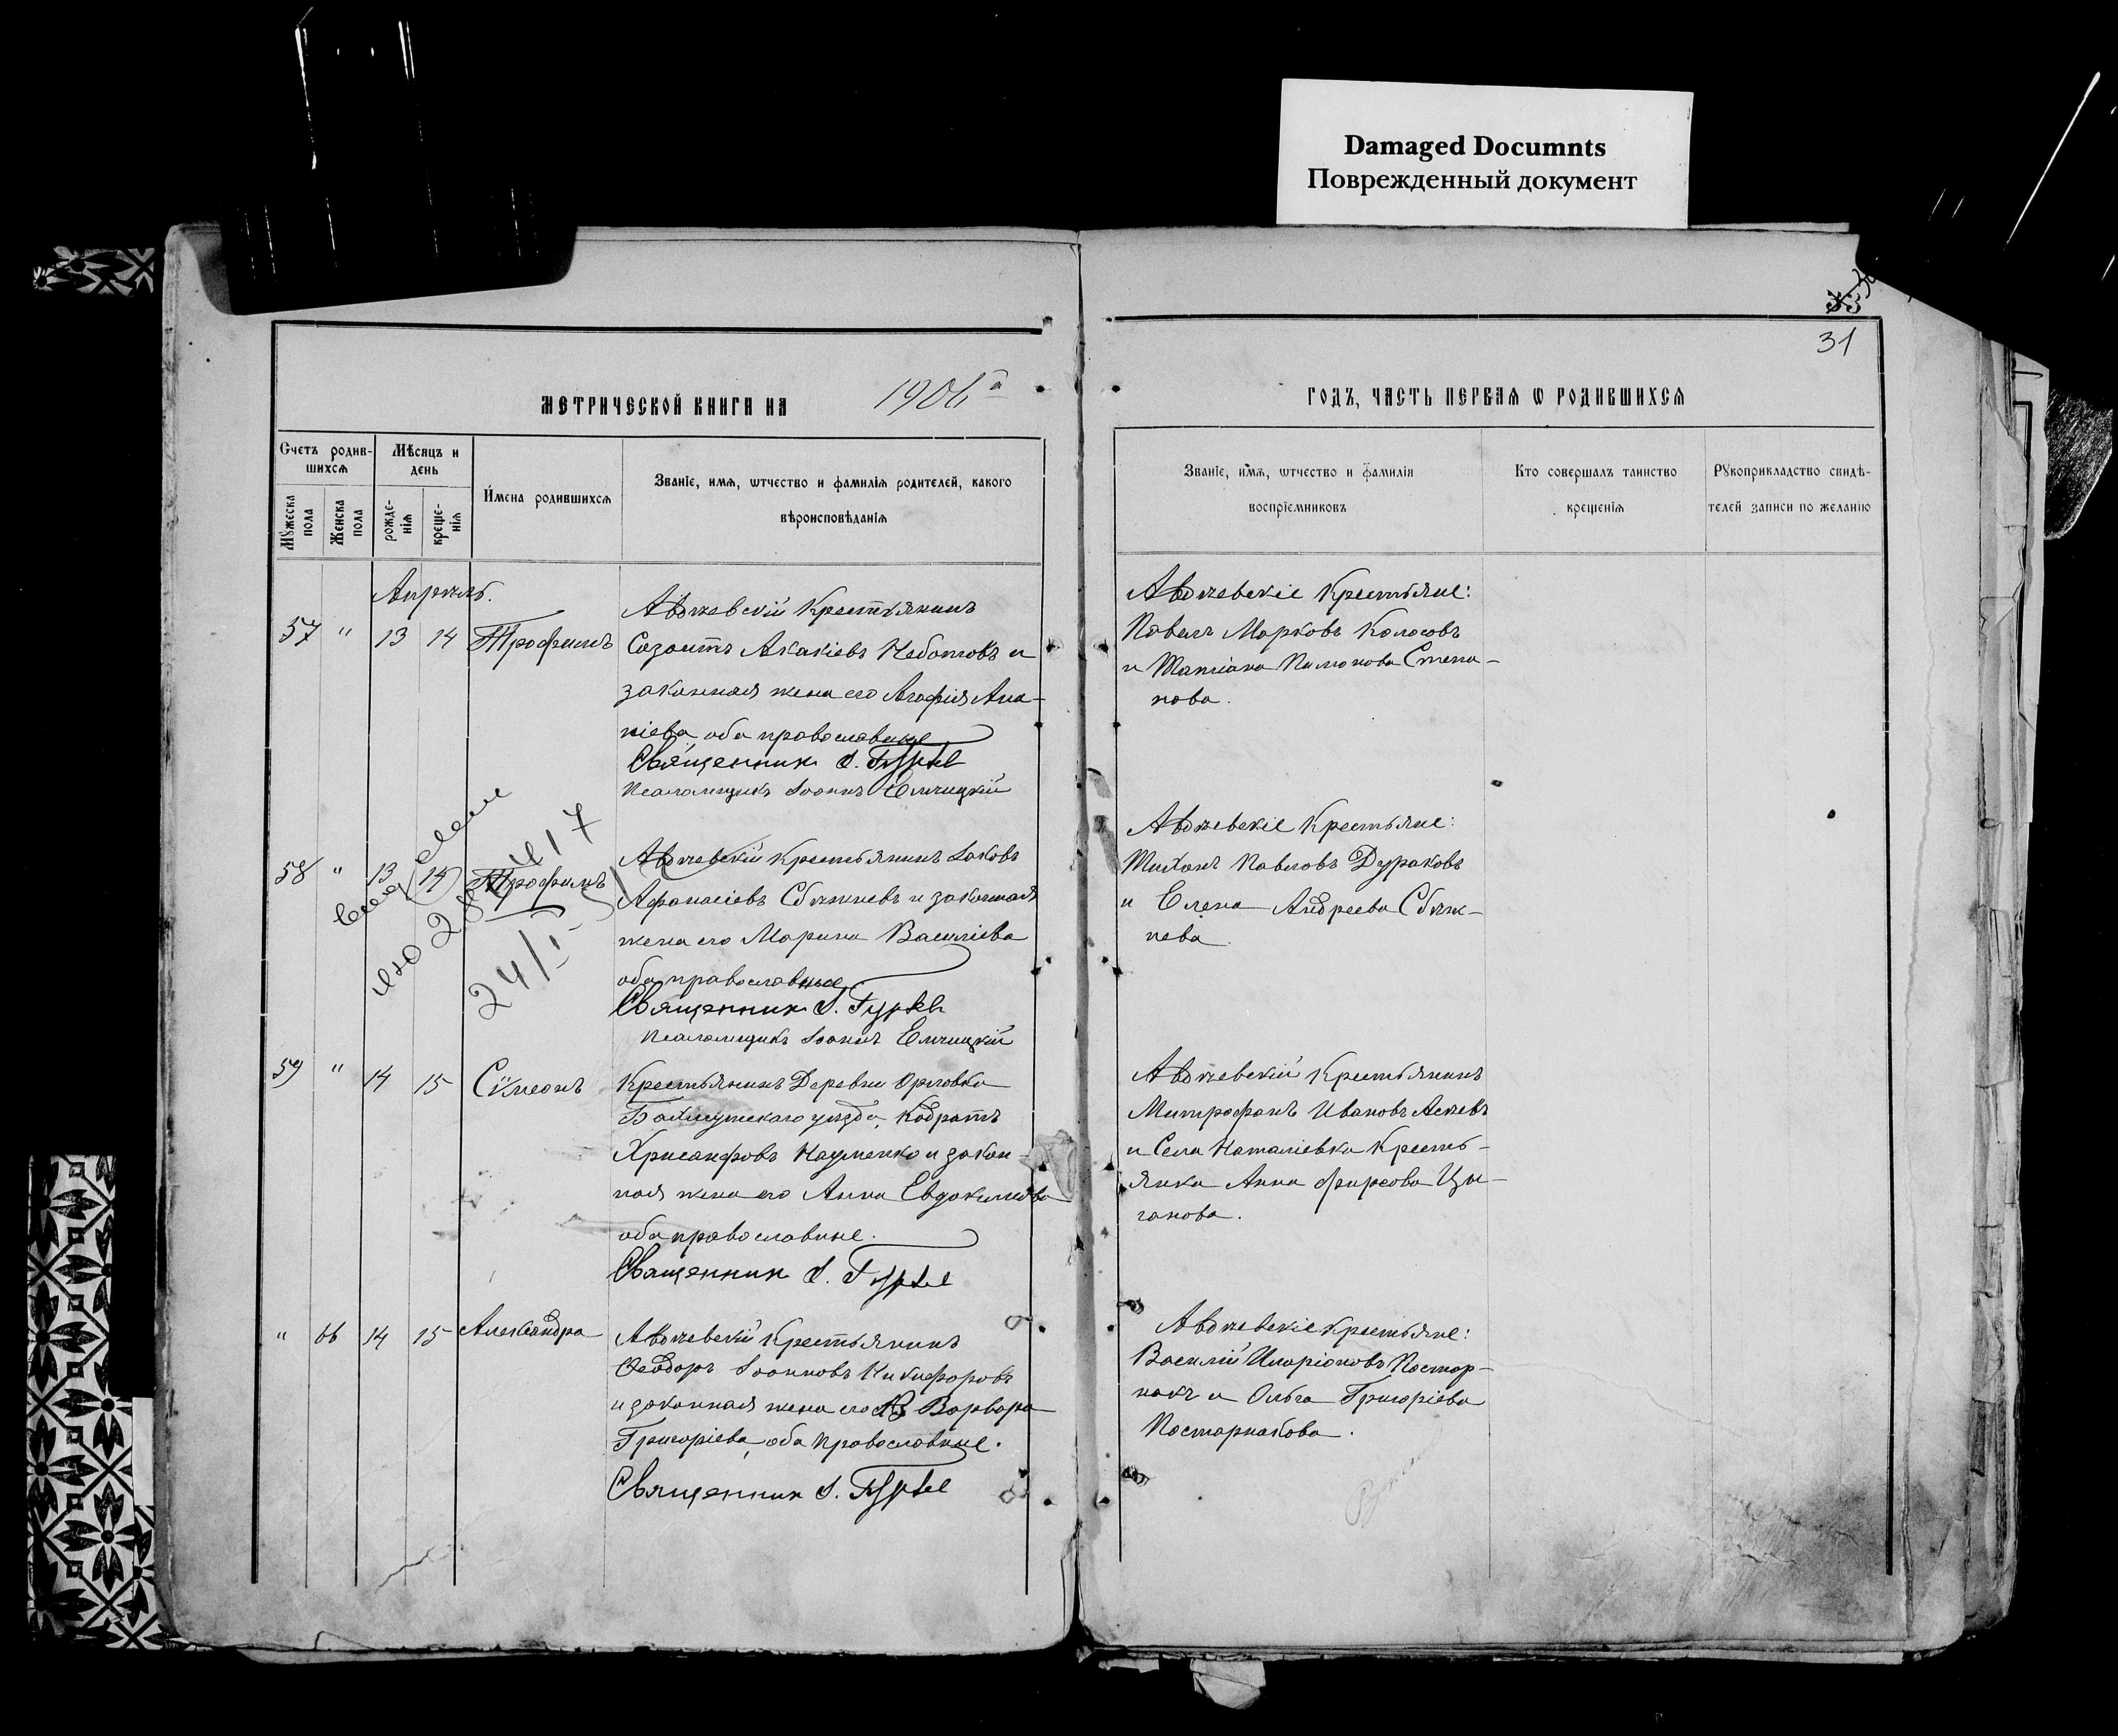 Damaged Documnts
Поврежденный документ
53
31
МЕТРИЧЕСКОЙ КНИГИ НА 1906
ГОДЪ, ЧАСТЬ ПЕРВАѦ Ѡ РОДИВШИХСѦ
Счетъ родив-
шихсѧ
Мѣсяцъ и
день
Мꙋжеска
пола
Женска
пола
рожде-
нїѧ
креще-
нїѧ
Имена родившихсѧ
Званїе, имѧ, ѡтчество и фамилїѧ родителей, какого
вѣроисповѣданїѧ
Званїе, имѧ, ѡтчество и фамилїѧ
воспрїемниковъ
Кто совершалъ таинство
крещенїѧ
Рꙋкоприкладство свидѣ-
телей записи по желанїю
Апрѣль.
57 " 13 14 Трофимъ
Авдѣевскій Крестьянинъ
Созонтъ Акакіевъ Неботовъ и
законная жена его Агафія Ана-
ніева, оба православные
Священникъ І. Гурьев
Псаломщикъ Іоаннъ
Авдѣевскіе Крестьяне:
Павелъ Марковъ Колосовъ
и Татіана Пимонова Степа-
нова.
58 " 13 14 Трофимъ
24/I
Авдѣевскій Крестьянинъ Іаковъ
Афанасіевъ Сбѣжневъ и законная
жена его Марина Василіева
оба православные
Священникъ І. Гурьев
Псаломщикъ Іоаннъ
Авдѣевскіе Крестьяне:
Тихонъ Павловъ Дураковъ
и Елена Андреева Сбѣж-
нева.
59 " 14 15 Сѵмеонъ
Крестьянинъ Деревни Орловка
Бахмутскаго уѣзда, Кодратъ
Хрисанфовъ Науменко и закон-
ная жена его Анна Евдокимова
оба православные.
Священникъ І. Гурьев
Авдѣевскій Крестьянинъ
Митрофанъ Ивановъ Асѣевъ
и Села Наталіевки Кресть-
янка Анна Фирсова Цы-
ганова.
" 66 14 15 Александра
Авдѣевскій Крестьянинъ
Ѳеодоръ Іоанновъ Никифоровъ
и законная жена его Варвара
Григоріева, оба Православные.
Священникъ І. Гурьев
Авдѣевскіе Крестьяне:
Василій Иларіоновъ Постор-
накъ и Ольга Григоріева
Посторнакова.